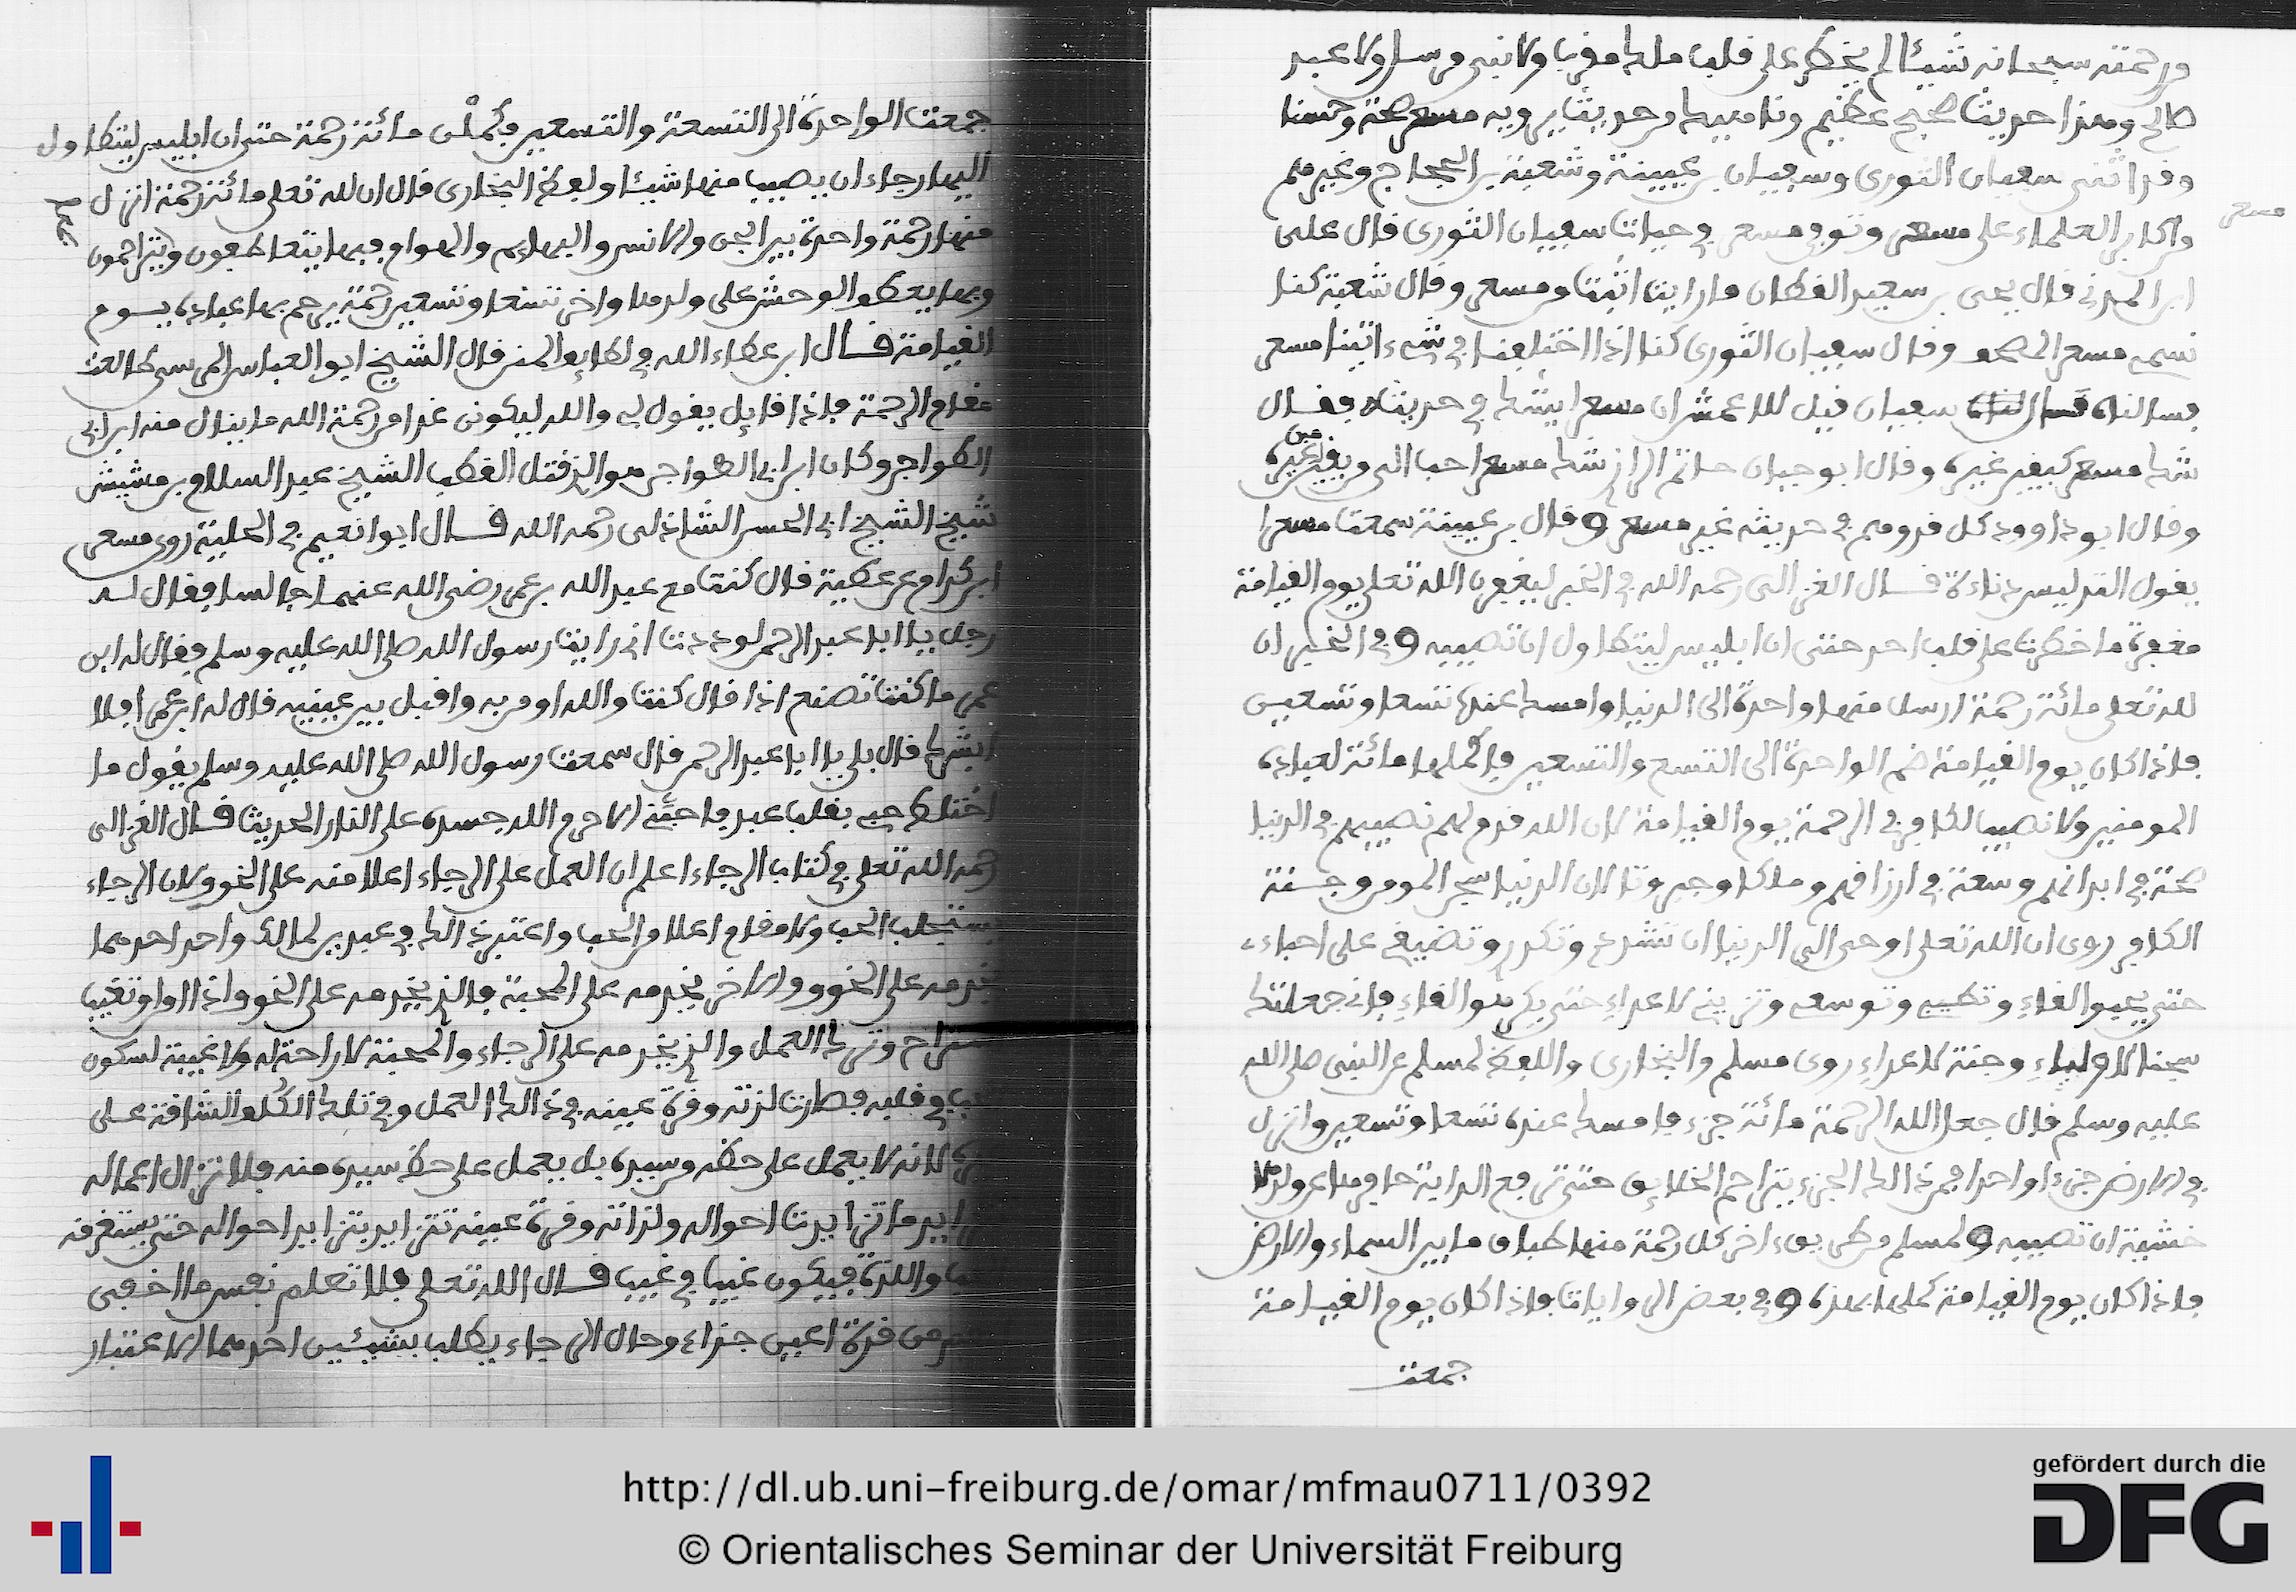 ورحمته سبحانه شيئا لم يخطر على قلب ملك مقرب ولا نبي مرسل ولا عبد
صالح وهذا حديث صحيح عظيم وناهيك بحديث يرويه مسعر صحة وحسنا
وقد اثنى سفيان الثوري وسفيان بن عيينة وشعبة بن الحجاج وغيرهم
مسعر
واكابر العلماء على مسعر وتوفي مسعر في حياة سفيان الثوري قال علي
ابن المديني قال يحيى بن سعيد القطان ما رايت اثبت من مسعر وقال شعبة كنا
نسمي مسعر المصحف وقال سفيان الثوري كنا اذا اختلفنا في شيء اتينا مسعر
فسالناه سفيان قيل للاعمش ان مسعرا يشك في حديثه فقال
شك مسعر كيقين غيره وقال ابو حيان حاتم الرازي شك مسعر احب الي من يقين غيره
وقال ابو داوود كل قد وهم في حديثه غير مسعر و قال بن عيينة سمعت مسعرا
يقول التدليس دناءة قال الغزالي رحمه الله في الخبر ليغفرن الله تعلى يوم القيامة
مغفرة ما خطرت على قلب احد حتى ان ابليس ليتطاول ان تصيبه و في الخبر ان
لله تعلى مائة رحمة ارسل منها واحدة الى الدنيا وامسك عنده تسعا وتسعين
فاذا كان يوم القيامة ضم الواحدة الى التسع والتسعين فاكملها مائة لعباده
المومنين ولا نصيب لكافر في الرحمة يوم القيامة لان الله قدم لهم نصيبهم في الدنيا
صحة في ابدانهم وسعة في ارزاقهم وملكا وجبروتا لان الدنيا سجن المومن وجنة
الكافر روى ان الله تعلى اوحى الى الدنيا ان تشردي وتكدري وتضيقي على احباءي
حتى يحبوا لقاءي وتطيبي وتوسعي وتزيني لاعداءي حتى يكرهوا لقاءي فاني جعلتك
سجنا لاوليائي وجنة لاعداءي روى مسلم والبخاري واللفظ لمسلم عن النبي صلى الله
عليه وسلم قال جعل الله الرحمة مائة جزء فامسك عنده تسعا وتسعين وانزل
في الارض جزءا واحدا فمن ذالك الجزء يتراحم الخلايق حتى ترفع الدابة حافرها عن ولدها
خشية ان تصيبه و لمسلم من طريق ءاخر كل رحمة منها طباق ما بين السماء والارض
فاذا كان يوم القيامة كملها بهذه و في بعض الروايات فاذا كان يوم القيامة
جمعت
جمعت الواحدة الى التسعة والتسعين فكملت مائة رحمة حتى ان ابليس ليتطاول
اليها رجاء ان يصيب منها شيئا ولفظ البخاري قال ان لله تعلى مائة رحمة انزل
منها رحمة واحدة بين الجن والانس والبهايم والهوام فبها يتعاطفون وبها يتراحمون
وبها يعطف الوحش على ولدها واخر تسعا وتسعين رحمة يرحم بها عباده يوم
القيامة قال ابن عطاء الله في لطايف المنن قال الشيخ ابو العباس المرسي طالعت
مقام الرحمة فاذا قايل يقول لي والله ليكونن غدا من رحمة الله ما ينال منه ابن ابي
الطواجن وكان ابن ابي الطواجن هو الذي قتل القطب الشيخ عبد السلام بن مشيش
شيخ الشيخ ابي الحسن الشاذلي رحمه الله قال ابو نعيم في الحلية روى مسعر
ابن كدام عن عطية قال كنت مع عبد الله بن عمر رضي الله عنهما جالسا فقال له
رجل يا ابا عبد الرحمن لوددت اني رايت رسول الله صلى الله عليه وسلم فقال له ابن
عمر ما كنت تصنع اذا قال كنت والله اومن به واقبل بين عينيه قال له ابن عمر افلا
ابشرك قال بلى يا ابا عبد الرحمن قال سمعت رسول الله صلى الله عليه وسلم يقول ما
اختلط حبي بقلب عبد فاحبني الا حرم الله جسده على النار الحديث قال الغزالي
رحمه الله تعلى في كتاب الرجاء اعلم ان العمل على الرجاء اعلا منه على الخوف لان الرجاء
يستجلب الحب ولا مقام اعلا من الحب واعتبر ذالك في عبدين لمالك واحد احدهما
يخدمه على الخوف والاخر يخدمه على المحبة فالذي يخدمه على الخوف اذا
وترك العمل والذي يخدمه على الرجاء والمحبة لا راحة له ولا غيبة لسكون
في قلبه فصارت لذته وقرة عينه في ذالك العمل وفي تلك الكلف الشاقة على
لانه لا يعمل على حظه وسيده بل يعمل على حظ سيده منه فلا تزال اعماله
تزايدت احواله ولذاته وقرة عينه تتزايد بتزايد احواله حتى يستغرقه
واللذة فيكون غيبا في غيب قال الله تعلى فلا تعلم نفس ما اخفي
لهم من قرة اعين جزاء وحال الرجاء يطلب بشيئين احدهما الاعتبار
http://dl.ub.uni-freiburg.de/omar/mfmau0711/0392
© Orientalisches Seminar der Universität Freiburg
gefördert durch die
DFG